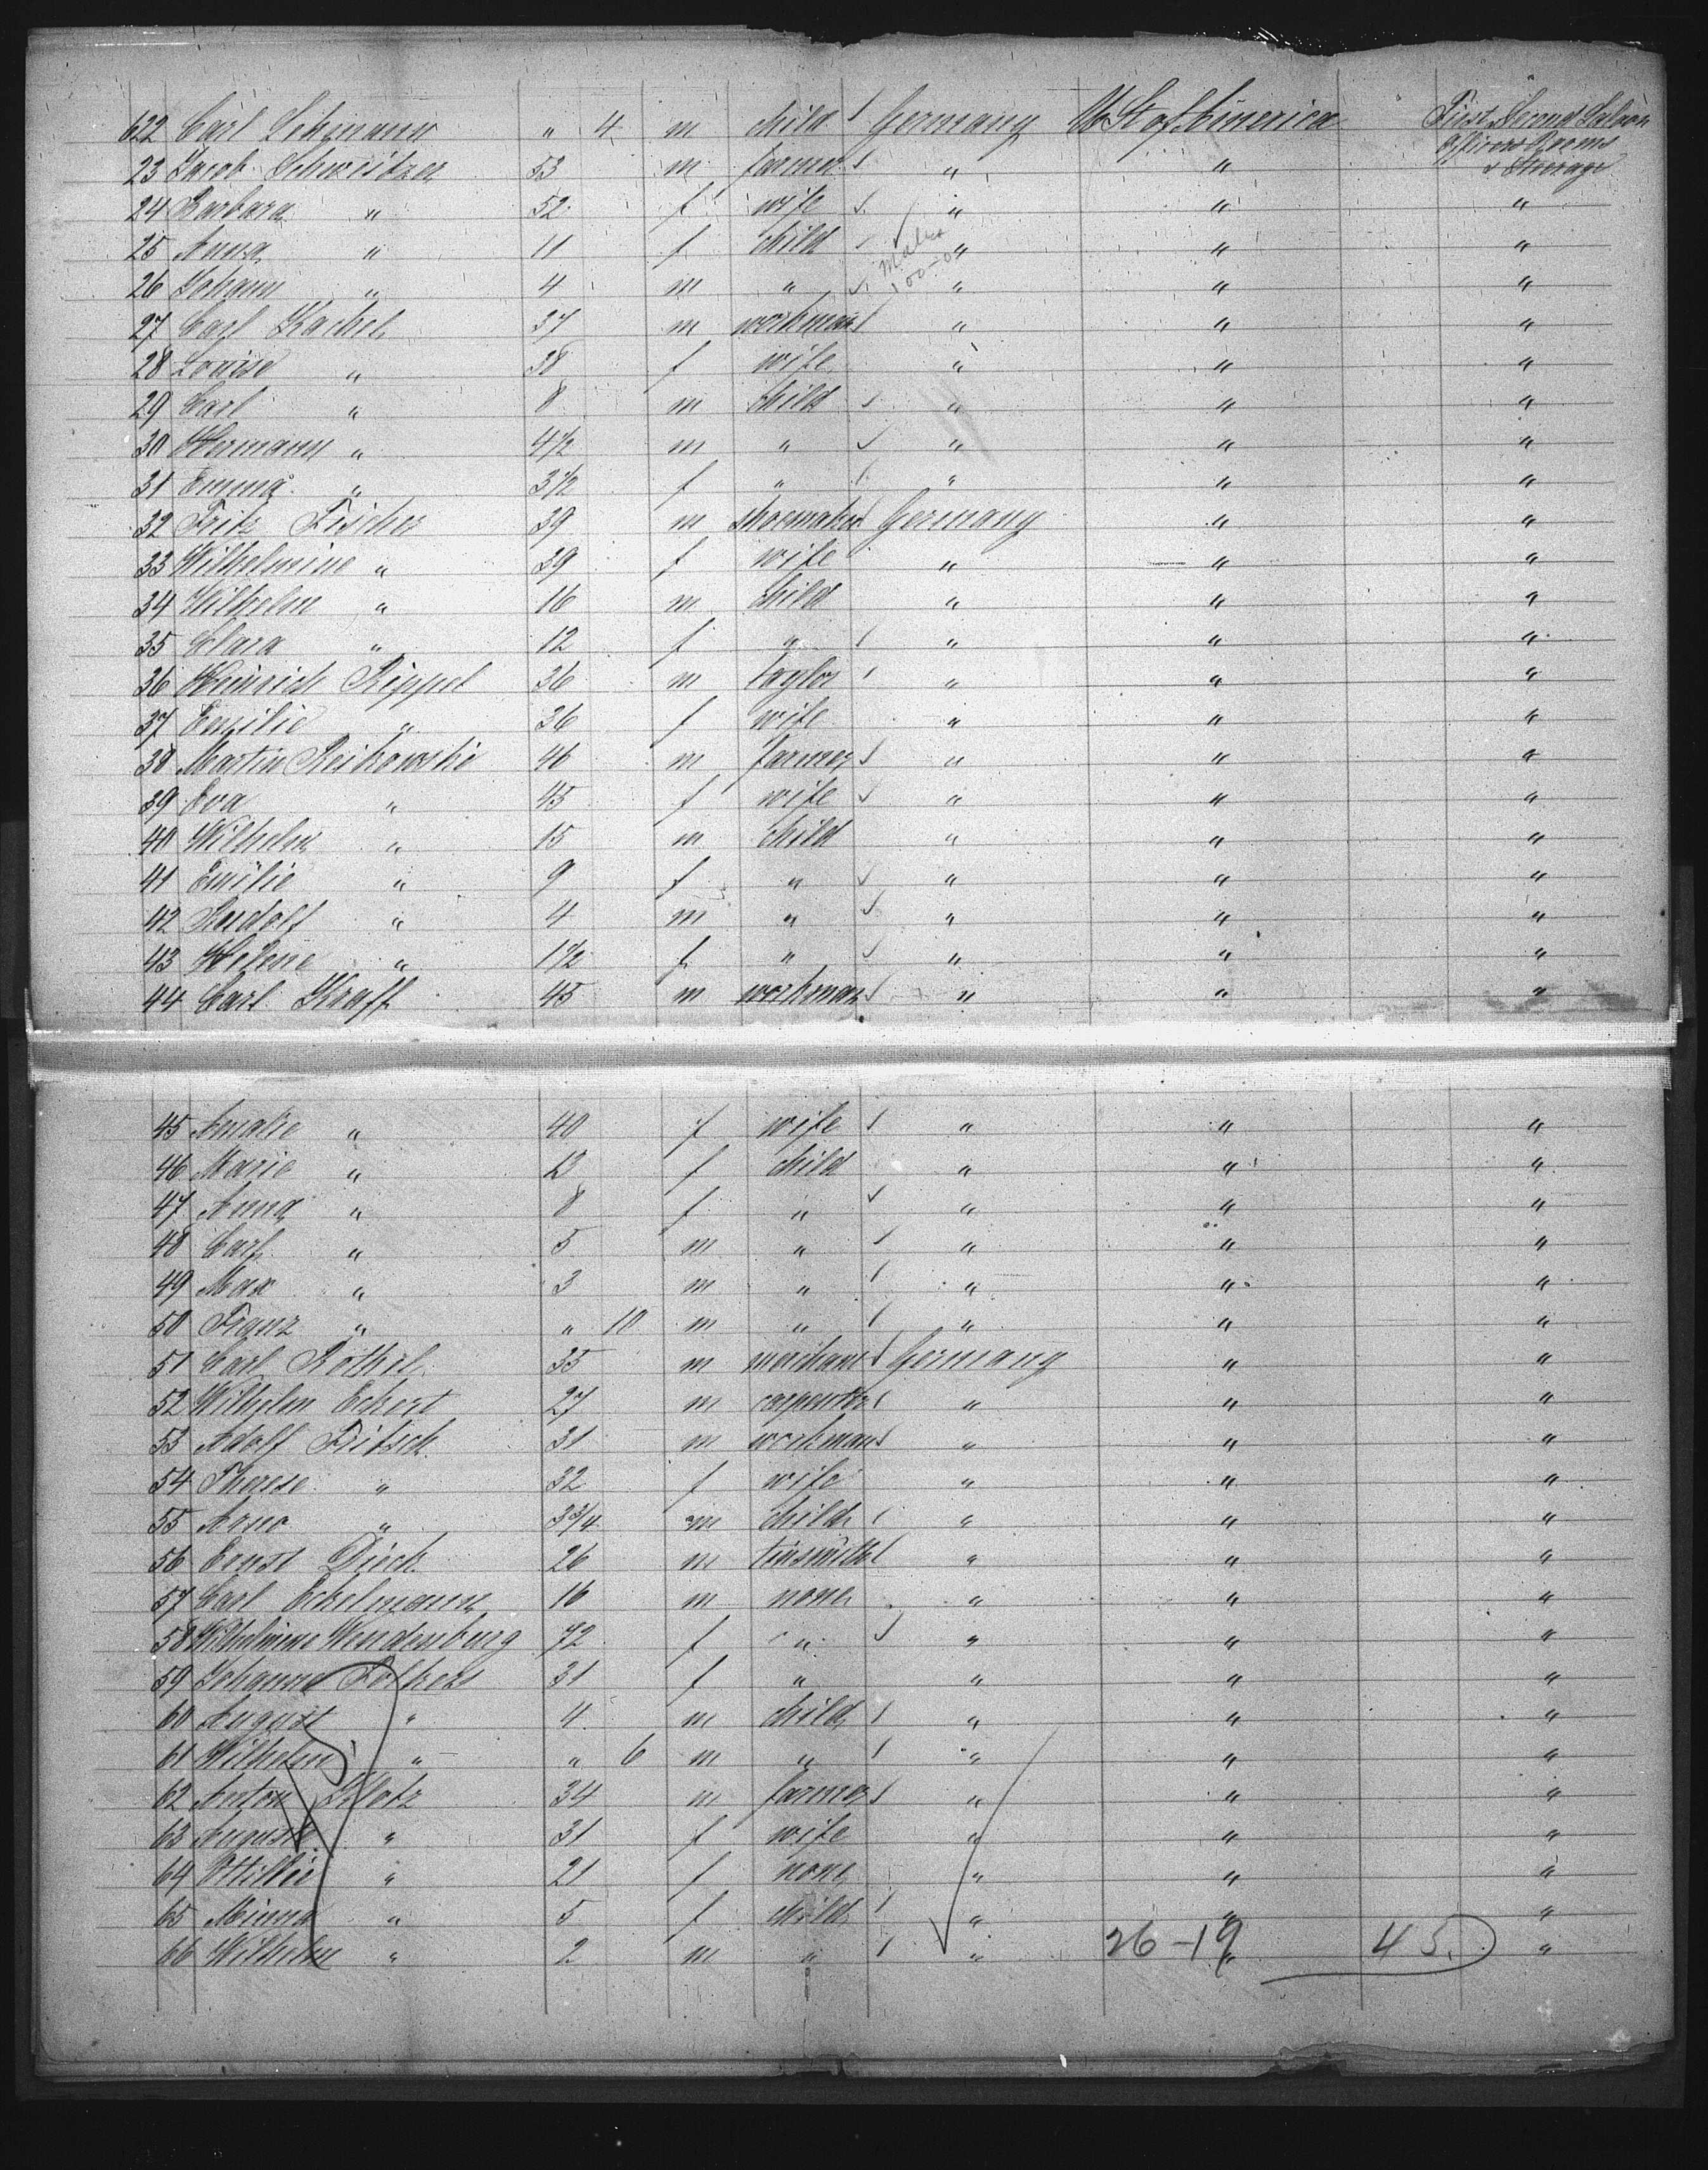 622 Carl Lehmann " 4 m child Germany U St of America First Second Saloon
Officers Rooms
23 Jacob Schweitzer 53 m farmer " " & Steerage
24 Barbara " 52 f wife " " "
25 Anna " 11 f child " " "
26 Johann " 4 m " " " "
27 Carl Kachel 37 m workman " " "
28 Louise " 38 f wife " " "
29 Carl " 8 m child " " "
30 Hermann " 4 1/2 m " " " "
31 Emma " 3 1/2 f " " " "
32 Fritz Fischer 39 m shoemaker Germany " "
33 Wilhelmine " 39 f wife " " "
34 Wilhelm " 16 m child " " "
35 Clara " 12 f " " " "
36 Heinrich Rippel 36 m taylor " " "
37 Emilie " 36 f wife " " "
38 Martin Reikowski 46 m farmer " " "
39 Eva " 45 f wife " " "
40 Wilhelm " 15 m child " " "
41 Emilie " 9 f " " " "
42 Rudolf " 4 m " " " "
43 Helene " 1 1/2 f " " " "
44 Carl Kraft 45 m workman " " "
45 Amalie " 40 f wife " " "
46 Marie " 13 f child " " "
47 Anna " 8 f " " " "
48 Carl " 5 m " " " "
49 Max " 3 m " " " "
50 Franz " " 10 m " " " "
51 Carl Röthel 35 m merchant Germany " "
52 Wilhelm Eckert 27 m carpenter " " "
53 Adolf Fritsch 31 m workman " " "
54 Therese " 32 f wife " " "
55 Arno " 3 3/4 m child " " "
56 Ernst Dieck 26 m tinsmith " " "
57 Carl Eckelmann 16 m none " " "
58 Wilhelmine Wendenburg 72 f " " " "
59 Johanna 31 f " " " "
60 August " 4 m child " " "
61 Wilhelm " " 6 m " " " "
62 Anton Klotz 34 m farmer " " "
63 Auguste " 31 f wife " " "
64 Ottilie " 21 f none " " "
65 Minna " 5 f child " " "
66 Wilhelm " 2 m " " " "
26-19 45